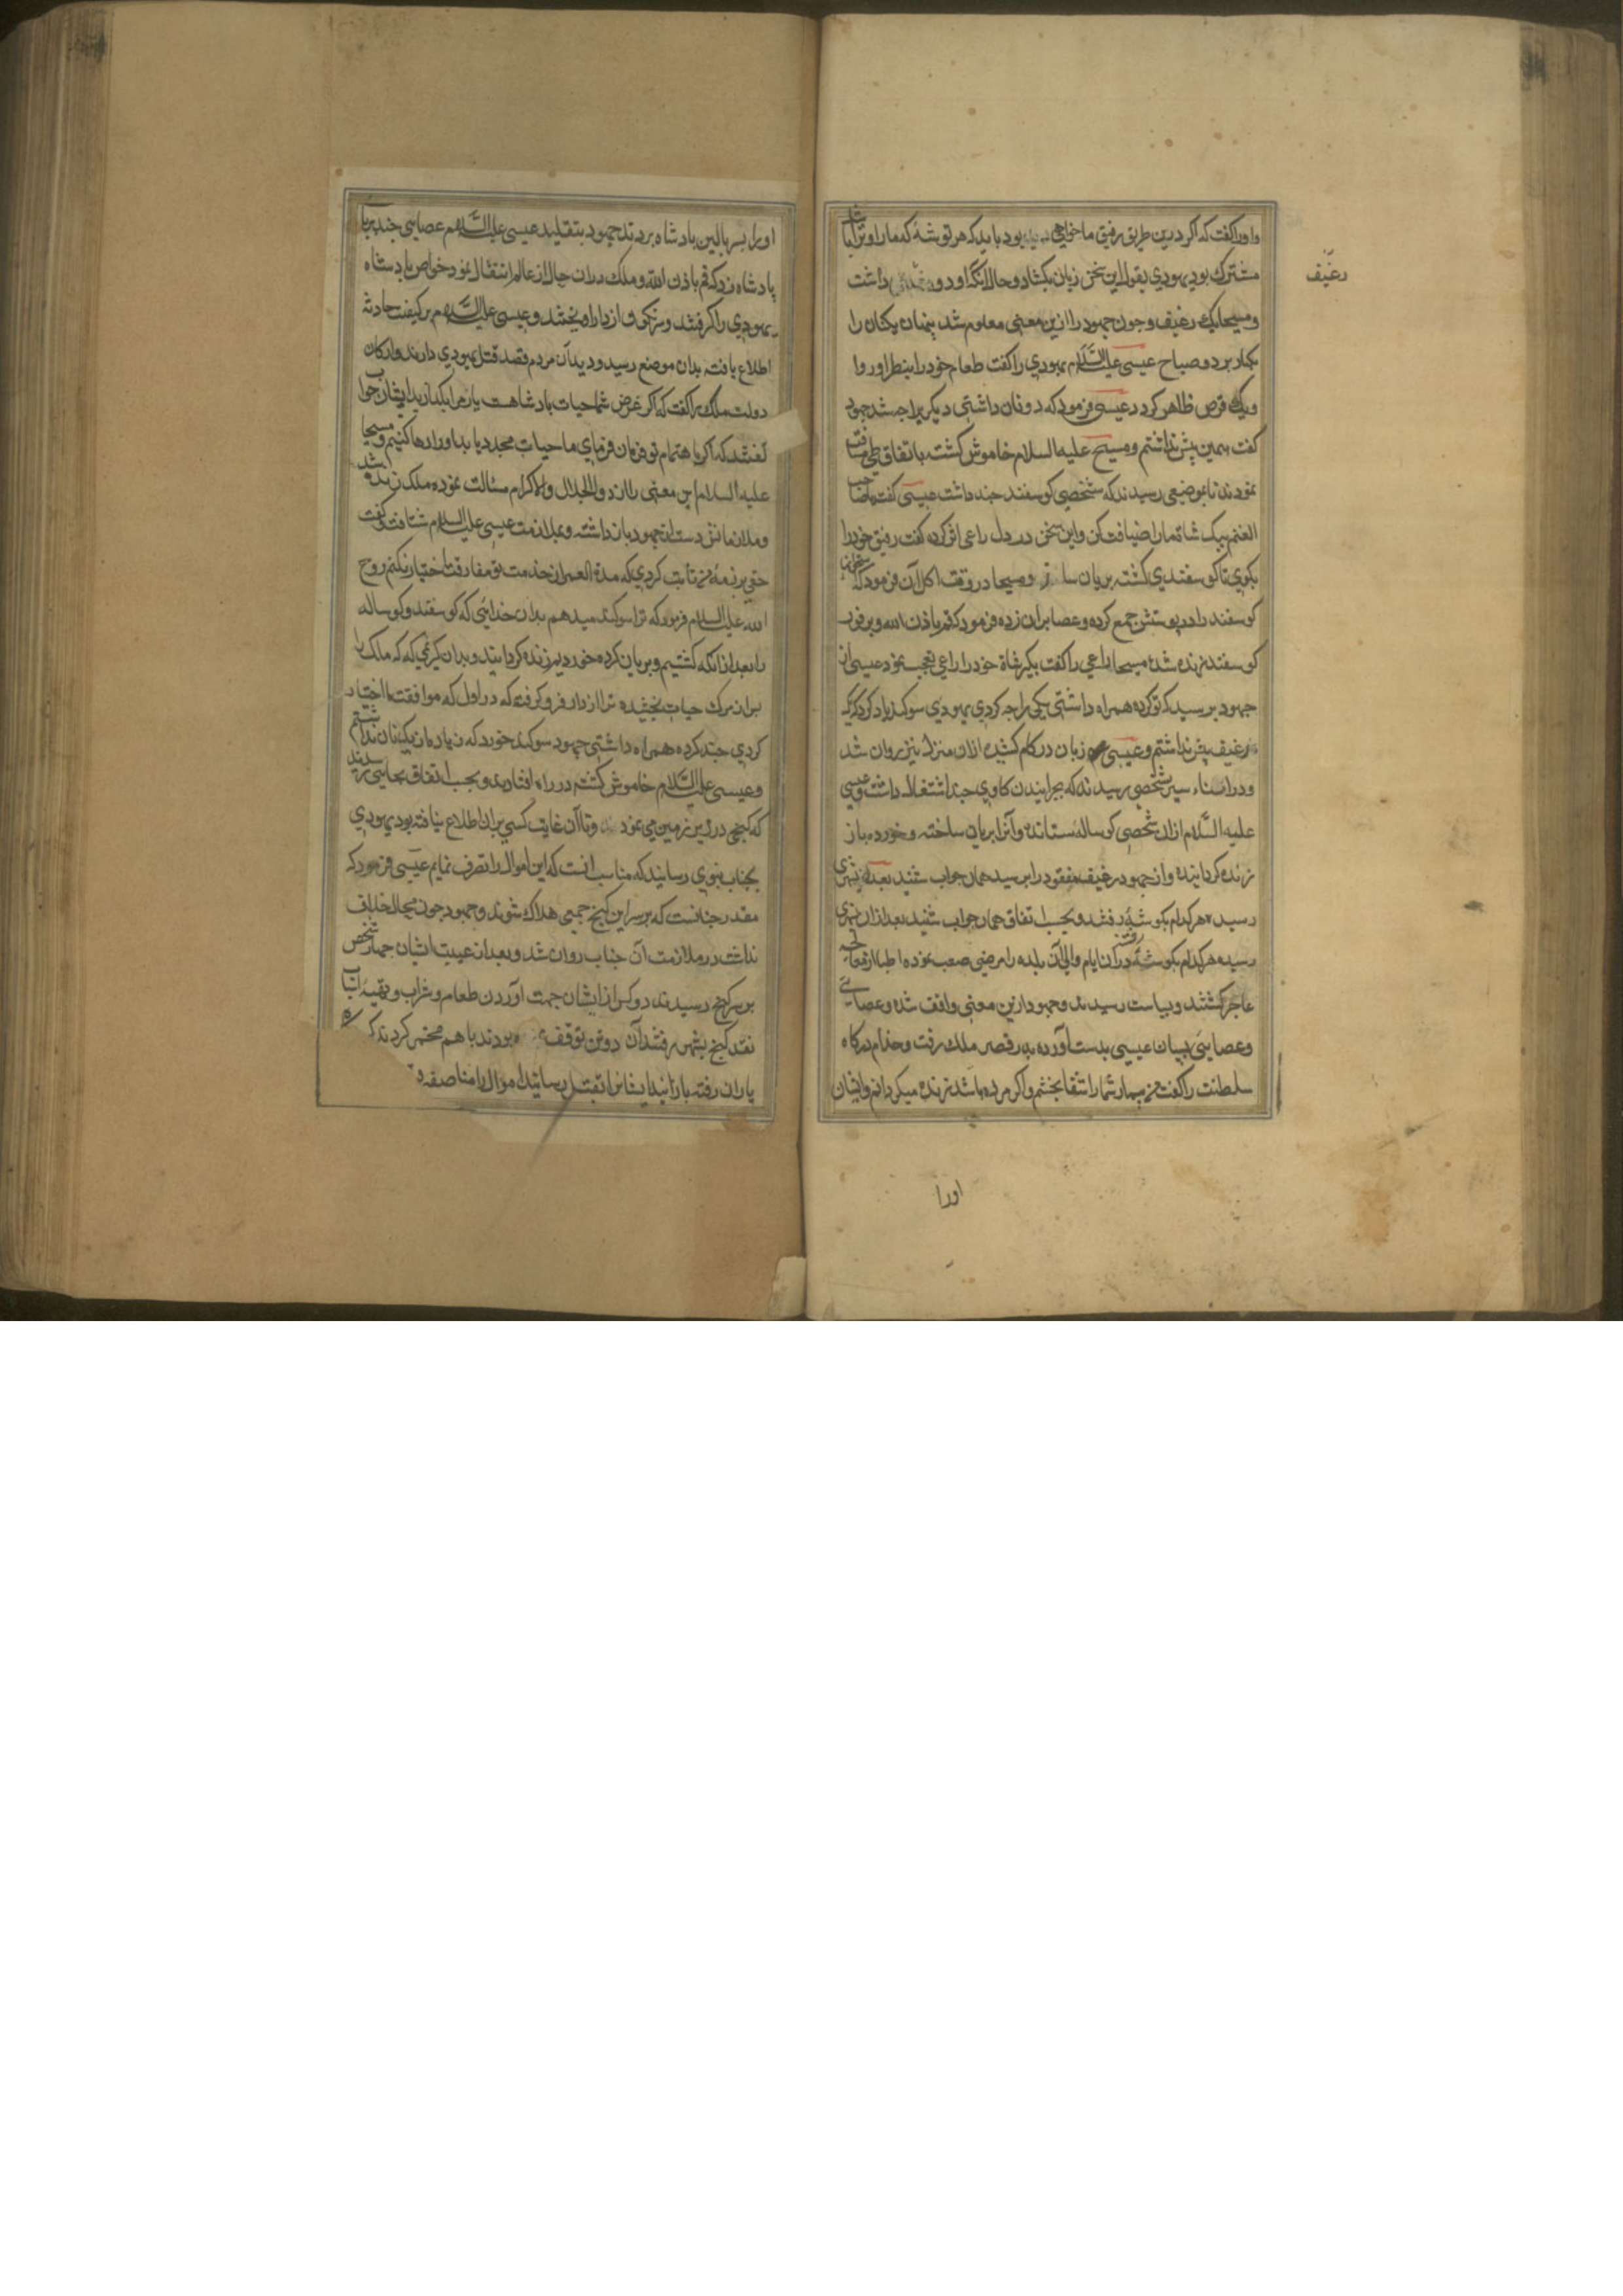 واورا گفت که اگر درین طریق رفیق ما خواهی بود باید که هر توشهٔ که ما را و ترا باشد
مشترک بود یهودی بقول این سخن زبان بکشاد و حال آنکه او دو رغیف داشت
رغیف
و مسیحا یک رغیف و چون جهود را ازین معنی معلوم شد پنهان یک نان را
بکار برد و صباح عیسی علیه السلام یهودی را گفت طعام خود را بنظر آور و او
و یک قرص ظاهر کرد عیسی فرمود که دو نان داشتی دیگر را چه شد جهود
گفت همین پیش نداشتم و مسیح علیه السلام خاموش گشت باتفاق طی مسافت
نمودند تا بموضعی رسیدند که شخصی گوسفند چند داشت عیسی گفت یا صاحب
الغنم بیک شاة ما را ضیافت کن و این سخن در دل راعی اثر کرده گفت رفیق خود را
بکوی تا گوسفندی کشته بریان سازد و مسیحا در وقت اکل آن فرمود که استخوان
گوسفند را در پوستش جمع کرده و عصا بران زده فرمود که قم باذن الله و بر فور
گوسفند زنده شد مسیحا راعی را گفت بگیر شاة خود را راعی تعجب نمود عیسی از
جهود پرسید که تو گرده همراه داشتی یکی را چه کردی یهودی سوگند یاد کرد که یک
رغیف بیش نداشتم و عیسی زبان در کام کشیده ازان منزل نیز روان شد
و در اثناء سیر بشخصی رسیدند که بچرانیدن گاوی چند اشتغال داشت و عیسی
علیه السلام ازان شخص گوساله ستاند و آنرا بریان ساخته و خورده باز
زنده گردانیده و از جهود رغیف مفقود را پرسید همان جواب شنید بعده بشهری
رسیده هر کدام بگوشهٔ رفتند و بحسب اتفاق همان جواب شنید بعد ازان بشهری
رسیده هر کدام بگوشهٔ رفتند در آن ایام والی آن بلده را مرضی صعب نموده اطبا از معالجه
عاجز گشتند و بسیاست رسیدند و جهود ازین معنی واقف شده و عصایی
و عصایی بسان عیسی بدست آورده بدر قصر ملک رفت و خدام درگاه
سلطنت را گفت من بیمار شما را شفا بخشم و اگر مرده باشد زنده میگردانم و ایشان
اورا
اورا بسر بالین پادشاه بردند جهود بتقلید عیسی علیه السلام عصایی چند بر پای
پادشاه زد که قم باذن الله و ملک دران حال از عالم انتقال نمود خواص پادشاه
یهودی را گرفتند و سرنگون از دار آویختند و عیسی علیه السلام بر کیفیت حادثه
اطلاع یافته بدان موضع رسید و دید آن مردم قصد قتل یهودی دارند و ارکان
دولت ملک را گفت که اگر غرض شما حیات پادشاهست یار مرا بگذارید ایشان جواب
گفتند که اگر باهتمام تو فرمان فرمای ما حیات مجدد یابد او را رها کنیم و مسیحا
علیه السلام این معنی را از ذوالجلال والاکرام مسالت نموده ملک زنده شد
و ملازمانش دست از جهود باز داشته و بملازمت عیسی علیه السلام شتافت و گفت
حقی بر ذمهٔ من ثابت کردی که مدة العمر از خدمت تو مفارقت اختیار نکنم روح
الله علیه السلام فرمود که ترا سوگند میدهم بدان خدایی که گوسفند و گوساله
را بعد ازانکه کشتیم و بریان کرده خوردیم زنده گردانید و بدان کریمی که ملک را
بعد از مرگ حیات بخشیده ترا از دار فرو گرفت که در اول که موافقت ما اختیار
کردی چند گرده همراه داشتی جهود سوگند خورد که زیاده از یک نان نداشتم
و عیسی علیه السلام خاموش گشته در راه افتادند و بحسب اتفاق بجایی رسیدند
که گنجی در زیر زمین می نمود و تا آن غایت کسی بران اطلاع نیافته بود یهودی
بجناب نبوی رسانید که مناسب آنست که این اموال را تصرف نمایم عیسی فرمود که
مقدر چنانست که بر سر این گنج جمعی هلاک شوند و جهود چون مجال خلاف
نداشت در ملازمت آن جناب روان شد و بعد از غیبت ایشان چهار شخص
بر سر گنج رسیدند دو کس از ایشان جهت آوردن طعام و شراب و بقیهٔ اسباب
نقد گنج بشهر رفتند آن دو تن توقف بودند با هم مخمر کردند که
یاران رفته باز آیند ایشانرا بقتل رسانند اموال را مناصفه